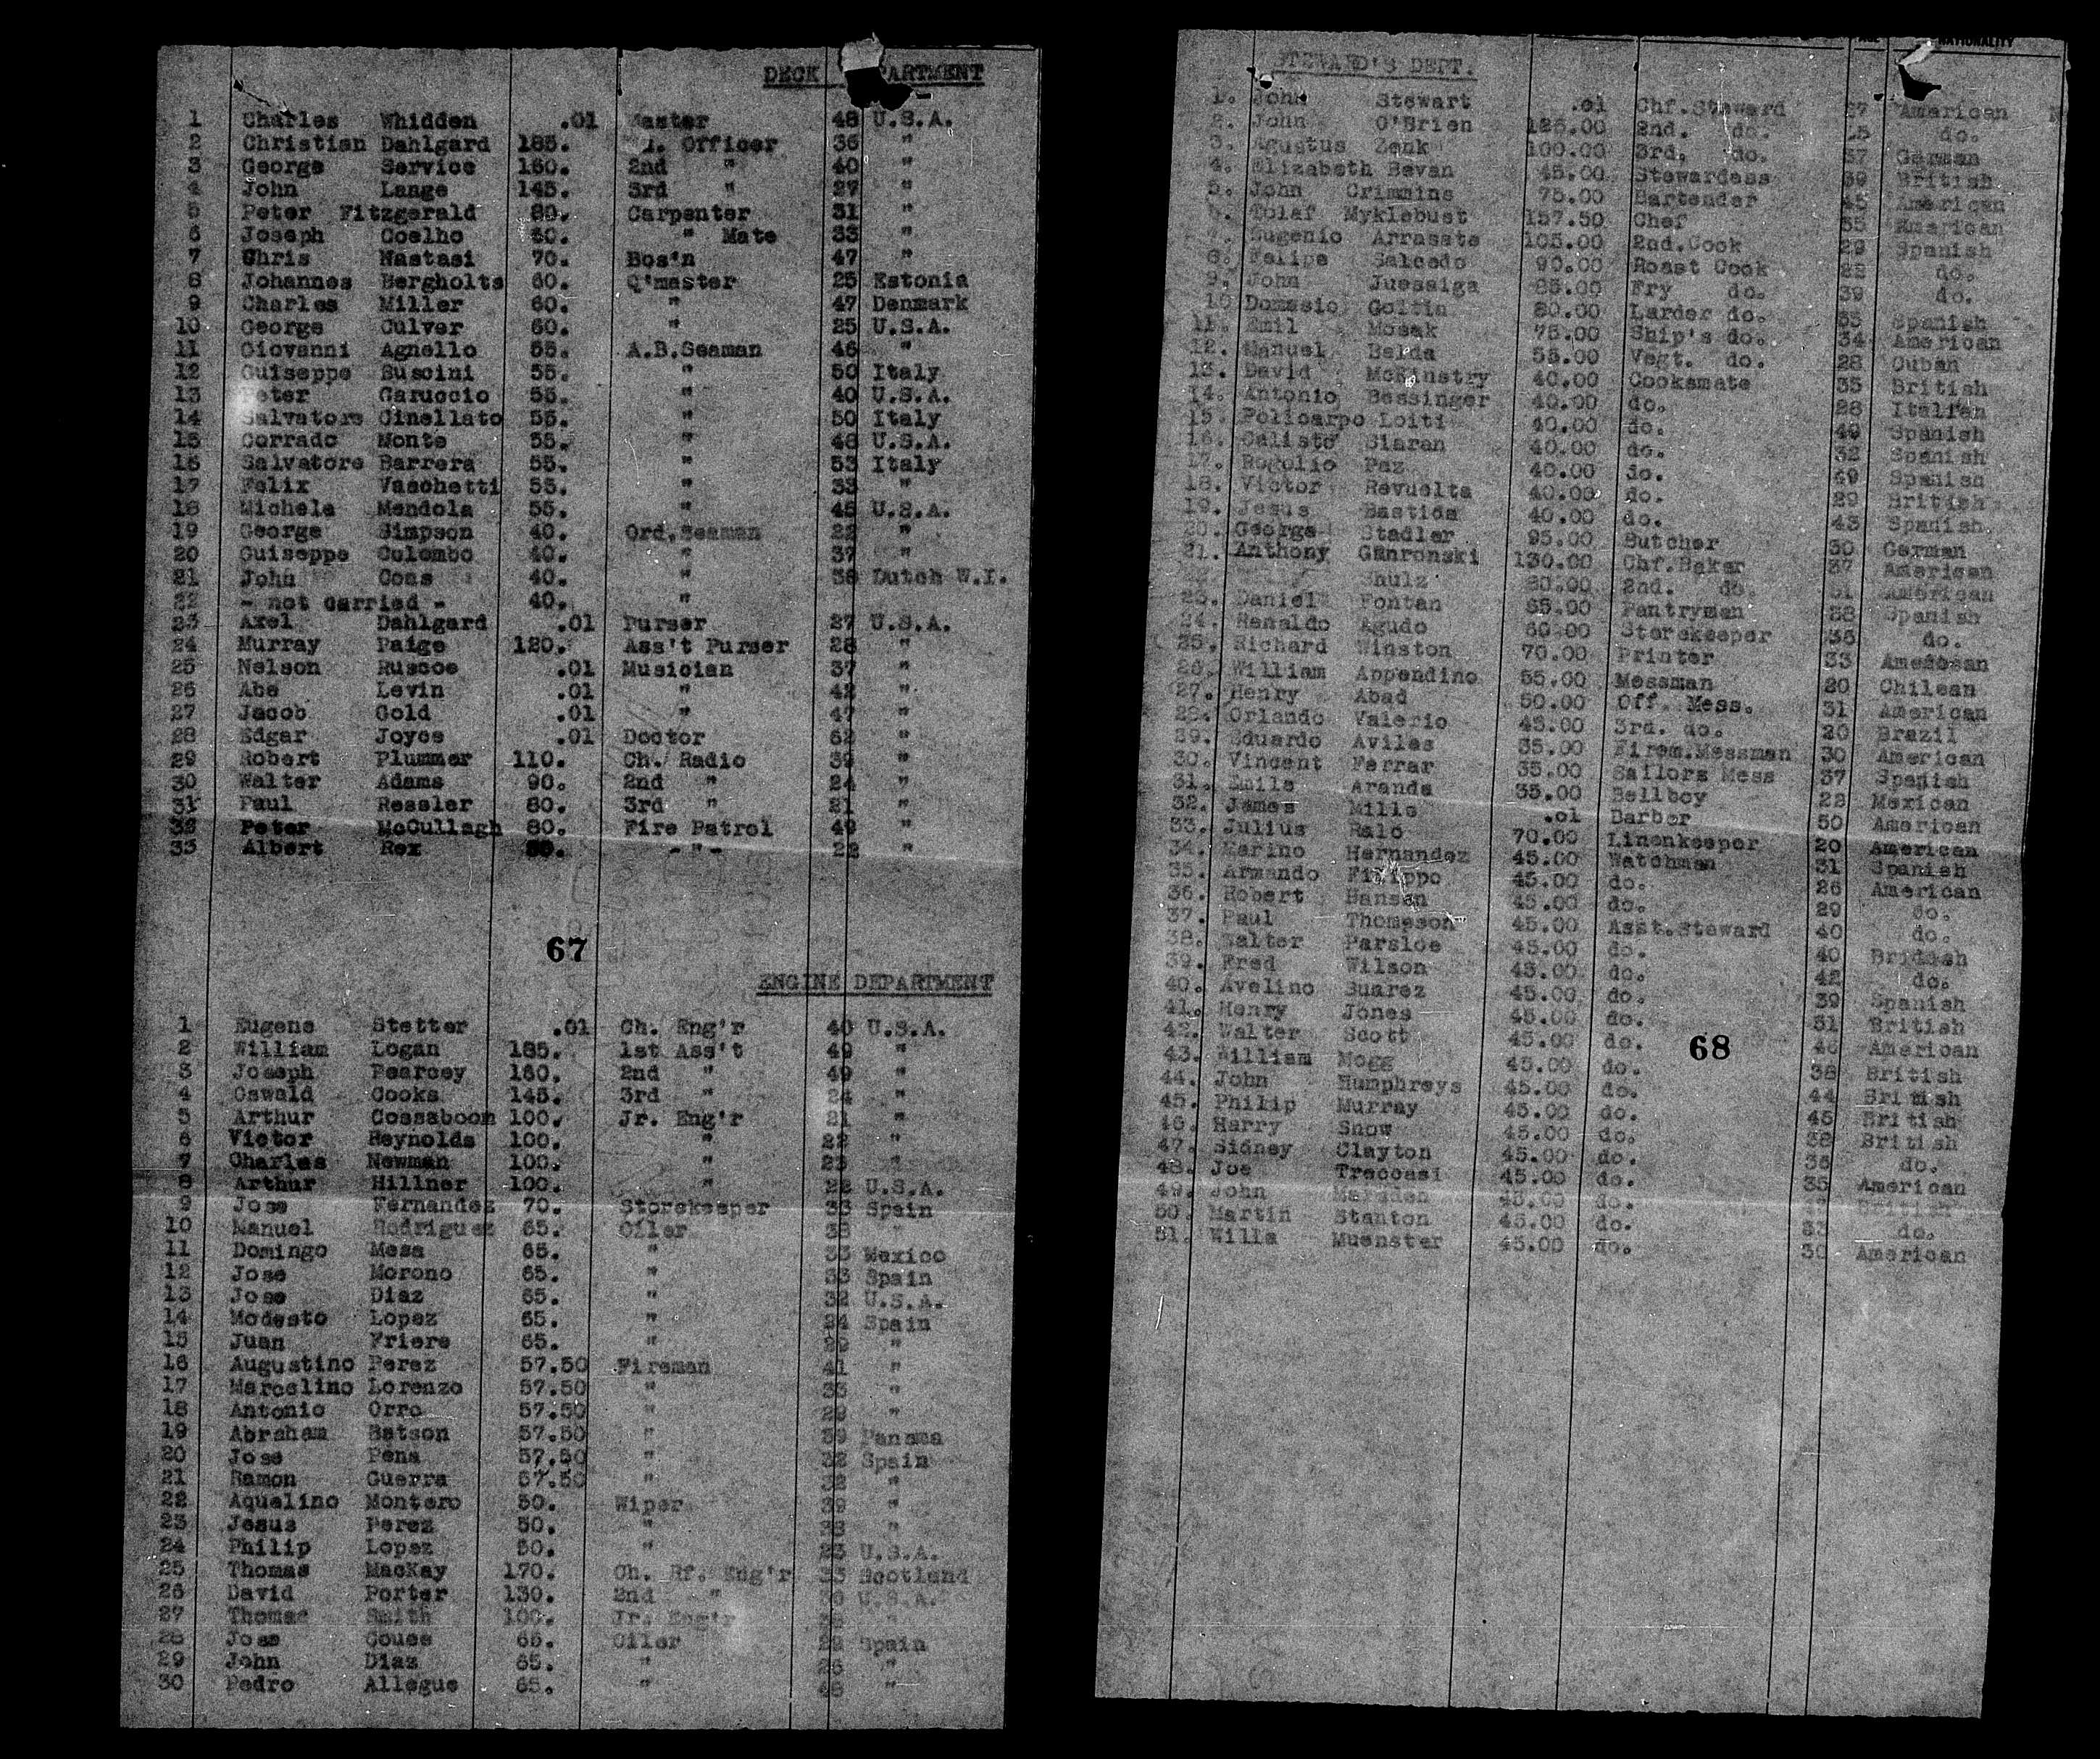 DECK PARTMENT
1 Charles Whidden .01 Master 48 U.S.A.
2 Christian Dahlgard 185. Officer 36 "
3 George Service 160. 2nd " 40 "
4 John Lange 145. 3rd " 27 "
5 Peter Fitzgerald 80. Carpenter 31 "
6 Joseph Coelho 60. " Mate 33 "
7 Chris Nastasi 70. Bos'n 47 "
8 Johannes Bergholts 60. Q'master 25 Estonia
9 Charles Miller 60. " 47 Denmark
10 George Culver 60. " 25 U.S.A.
11 Giovanni Agnello 55. A.B.Seaman 46 "
12 Guiseppe Buscini 55. " 50 Italy
13 Peter Caruccio 55. " 40 U.S.A.
14 Salvatore Cinellato 55. " 50 Italy
15 Corrado Monte 55. " 48 U.S.A.
16 Salvatore Barrera 55. " 53 Italy
17 Felix Vaschetti 55. " 33 "
18 Michele Mendola 55. " 45 U.S.A.
19 George Simpson 40. Ord.Seaman 22 "
20 Guiseppe Colombo 40. " 37 "
21 John Coas 40. " 38 Dutch W.I.
22 - not carried - 40. "
23 Axel Dahlgard .01 Purser 27 U.S.A.
24 Murray Paige 120. Ass't Purser 28 "
25 Nelson Ruscoe .01 Musician 37 "
26 Abe Levin .01 " 42 "
27 Jacob Gold .01 " 47 "
28 Edgar Joyce .01 Doctor 52 "
29 Robert Plummer 110. Ch. Radio 39 "
30 Walter Adams 90. 2nd " 24 "
31 Paul Ressler 80. 3rd " 21 "
32 Peter McCullagh 80. Fire Patrol 49 "
33 Albert Rex 80. -"- 22 "
67
ENGINE DEPARTMENT
1 Eugene Stetter .01 Ch. Eng'r 40 U.S.A.
2 William Logan 185. 1st Ass't 49 "
3 Joseph Pearcey 160. 2nd " 49 "
4 Oswald Cooks 145. 3rd " 24 "
5 Arthur Cossaboom 100. Jr. Eng'r 21 "
6 Victor Reynolds 100. " 22 "
7 Charles Newman 100. " 23 "
8 Arthur Hillner 100. " 22 U.S.A.
9 Jose Fernandez 70. Storekeeper 33 Spain
10 Manuel Rodriguez 65. Oiler 38 "
11 Domingo Mesa 65. " 33 Mexico
12 Jose Morono 65. " 33 Spain
13 Jose Diaz 65. " 32 U.S.A.
14 Modesto Lopez 65. " 24 Spain
15 Juan Friere 65. " 29 "
16 Augustino Perez 57.50 Fireman 41 "
17 Marcelino Lorenzo 57.50 " 33 "
18 Antonio Orro 57.50 " 29 "
19 Abraham Batson 57.50 " 39 Panama
20 Jose Pena 57.50 " 32 Spain
21 Ramon Guerra 57.50 " 32 "
22 Aquelino Montero 50. Wiper 39 "
23 Jesus Perez 50. " 38 "
24 Philip Lopez 50. " 23 U.S.A.
25 Thomas MacKay 170. Ch. Rf. Eng'r 33 Scotland
26 David Porter 130. 2nd " 36 U.S.A.
27 Thomas Smith 100. Jr. Eng'r "
28 Jose Couce 65. Oiler 29 Spain
29 John Diaz 65. " 26 "
30 Pedro Allegue 65. " 48 "
NATIONALITY
STEWARD'S DEPT.
1. John Stewart .01 Chf.Steward 27 American
2. John O'Brien 125.00 2nd. do. do.
3. Agustus Zenk 100.00 3rd. do. 37 German
4. Elizabeth Bevan 45.00 Stewardess 39 British
5. John Crimmins 75.00 Bartender 45 American
6. Tolaf Myklebust 157.50 Chef 35 American
7. Eugenio Arrasate 105.00 2nd.Cook 29 Spanish
8. Felipe Salcedo 90.00 Roast Cook 22 do.
9. John Juessiga 85.00 Fry do. 39 do.
10 Domasio Goitin 80.00 Larder do. 33 Spanish
11. Emil Mosak 75.00 Ship's do. 34 American
12. Manuel Belda 55.00 Vegt. do. 28 Cuban
13. David McKinstry 40.00 Cooksmate 35 British
14. Antonio Bessinger 40.00 do. 28 Italian
15. Policarpo Loiti 40.00 do. 49 Spanish
16. Calisto Siaren 40.00 do. 32 Spanish
17. Rogolio Paz 40.00 do. 49 Spanish
18. Victor Revuelta 40.00 do. 29 British
19. Jesus Bastida 40.00 do. 43 Spanish
20. George Stadler 95.00 Butcher 30 German
21. Anthony Ganronski 130.00 Chf.Baker 37 American
Shulz 80.00 2nd. do. 31 American
23. Daniel Fontan 65.00 Pantryman 28 Spanish
24. Renaldo Agudo 60.00 Storekeeper 35 do.
25. Richard Winston 70.00 Printer 33 American
26. William Appendino 55.00 Messman 20 Chilean
27. Henry Abad 50.00 Off. Mess. 31 American
28. Orlando Valerio 45.00 3rd. do. 20 Brazil
29. Eduardo Aviles 35.00 Firem.Messman 30 American
30. Vincent Ferrar 35.00 Sailors Mess 37 Spanish
31. Emile Aranda 35.00 Bellboy 22 Mexican
32. James Mills .01 Barber 50 American
33. Julius Ralo 70.00 Linenkeeper 20 American
34. Marino Hernandez 45.00 Watchman 31 Spanish
35. Armando Filippo 45.00 do. 26 American
36. Robert Hansen 45.00 do. 29 do.
37. Paul Thompson 45.00 Asst.Steward 40 do.
38. Walter Parsloe 45.00 do. 40 British
39. Fred Wilson 45.00 do. 42 do.
40. Avelino Suarez 45.00 do. 39 Spanish
41. Henry Jones 45.00 do. 31 British
42. Walter Scott 45.00 do. 46 American
68
43. William Mogg 45.00 do. 38 British
44. John Humphreys 45.00 do. 44 British
45. Philip Murray 45.00 do. 45 British
46. Harry Snow 45.00 do. 38 British
47. Sidney Clayton 45.00 do. 36 do.
48. Joe Treccasi 45.00 do. 35 American
49. John Marsden 45.00 do. British
50. Martin Stanton 45.00 do. 33 do.
51. Wills Muenster 45.00 do. 30 American